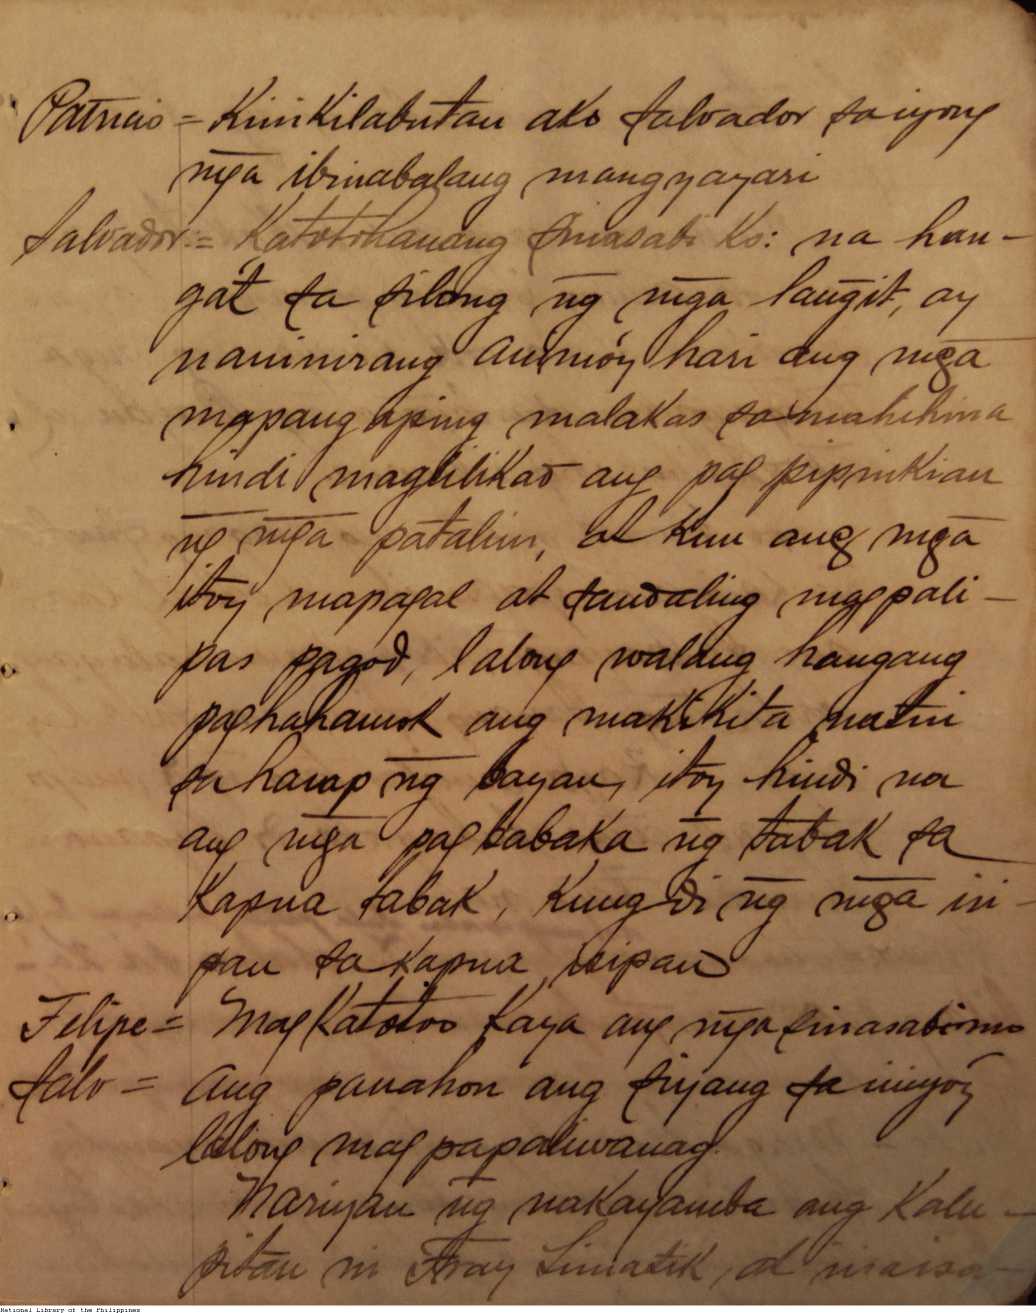 Patricio = Kinikilabutan ako Salvador sa iyong
m̃ga ibinabalang mangyayari
Salvador = Katotohanang sinasabi ko: na han-
gat sa silong ng̃ m̃ga lang̃it, ay
naninirang animóy hari ang m̃ga
mapang aping malakas sa mahihina
hindi maglilikad ang pag pipinkian
ng̃ m̃ga patalim, at kun ang m̃ga
itoy mapagal at sandaling magpali-
pas pagod, lalong walang hangang
paghahamok ang makikita natin
sa harap ng̃ bayan, itoy hindi na
ang m̃ga pagbabaka ng̃ tabak sa
kapua tabak, kung di ng̃ m̃ga in-
pan sa kapua isipan
Felipe = Magkatotoo kaya ang m̃ga sinasabi mo
Salv = Ang panahon ang siyang sa iniyóy
lalong mag papaliwanag.
Nariyan ng̃ nakayamba ang kalu-
pitan ni Fray Limatik, di maisa-
National Library of the Philippines